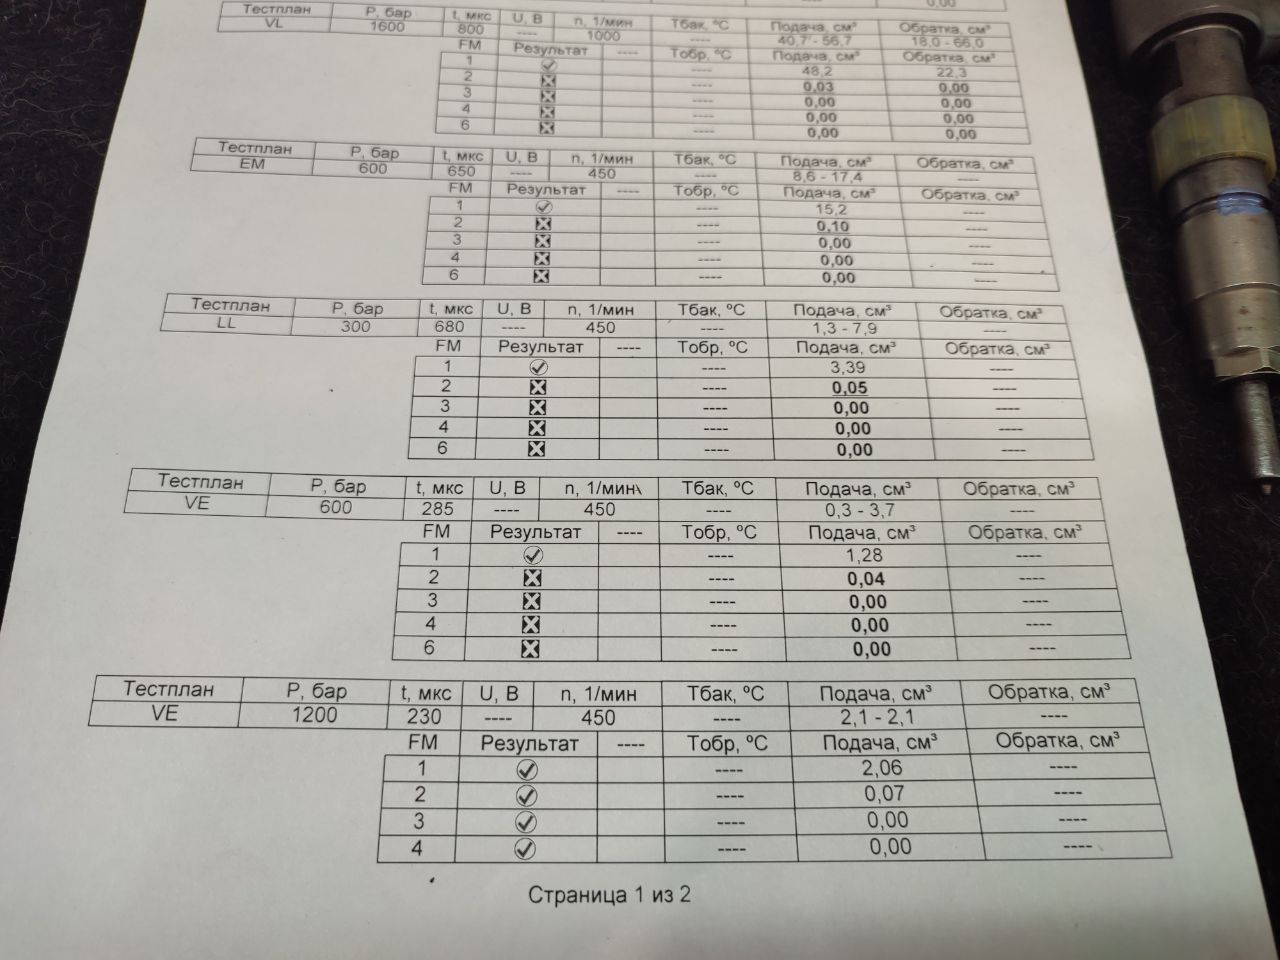 ---- 0,00
Тестплан P, бар t, мкс U, В n, 1/мин Тбак, ºС Подача, см³ Обратка, см³
VL 1600 800 ---- 1000 ---- 40,7 - 56,7 18,0 - 66,0
FM Результат ---- Тобр, ºС Подача, см³ Обратка, см³
1 ---- 48,2 22,3
2 ---- 0,03 0,00
3 ---- 0,00 0,00
4 ---- 0,00 0,00
6 ---- 0,00 0,00
Тестплан P, бар t, мкс U, В n, 1/мин Тбак, ºС Подача, см³ Обратка, см³
EM 600 650 ---- 450 ---- 8,6 - 17,4 ----
FM Результат ---- Тобр, ºС Подача, см³ Обратка, см³
1 ---- 15,2 ----
2 ---- 0,10 ----
3 ---- 0,00 ----
4 ---- 0,00 ----
6 ---- 0,00 ----
Тестплан P, бар t, мкс U, В n, 1/мин Тбак, ºС Подача, см³ Обратка, см³
LL 300 680 ---- 450 ---- 1,3 - 7,9 ----
FM Результат ---- Тобр, ºС Подача, см³ Обратка, см³
1 ---- 3,39 ----
2 ---- 0,05 ----
3 ---- 0,00 ----
4 ---- 0,00 ----
6 ---- 0,00 ----
Тестплан P, бар t, мкс U, В n, 1/мин Тбак, ºС Подача, см³ Обратка, см³
VE 600 285 ---- 450 ---- 0,3 - 3,7 ----
FM Результат ---- Тобр, ºС Подача, см³ Обратка, см³
1 ---- 1,28 ----
2 ---- 0,04 ----
3 ---- 0,00 ----
4 ---- 0,00 ----
6 ---- 0,00 ----
Тестплан P, бар t, мкс U, В n, 1/мин Тбак, ºС Подача, см³ Обратка, см³
VE 1200 230 ---- 450 ---- 2,1 - 2,1 ----
FM Результат ---- Тобр, ºС Подача, см³ Обратка, см³
1 ---- 2,06 ----
2 ---- 0,07 ----
3 ---- 0,00 ----
4 ---- 0,00 ----
Страница 1 из 2